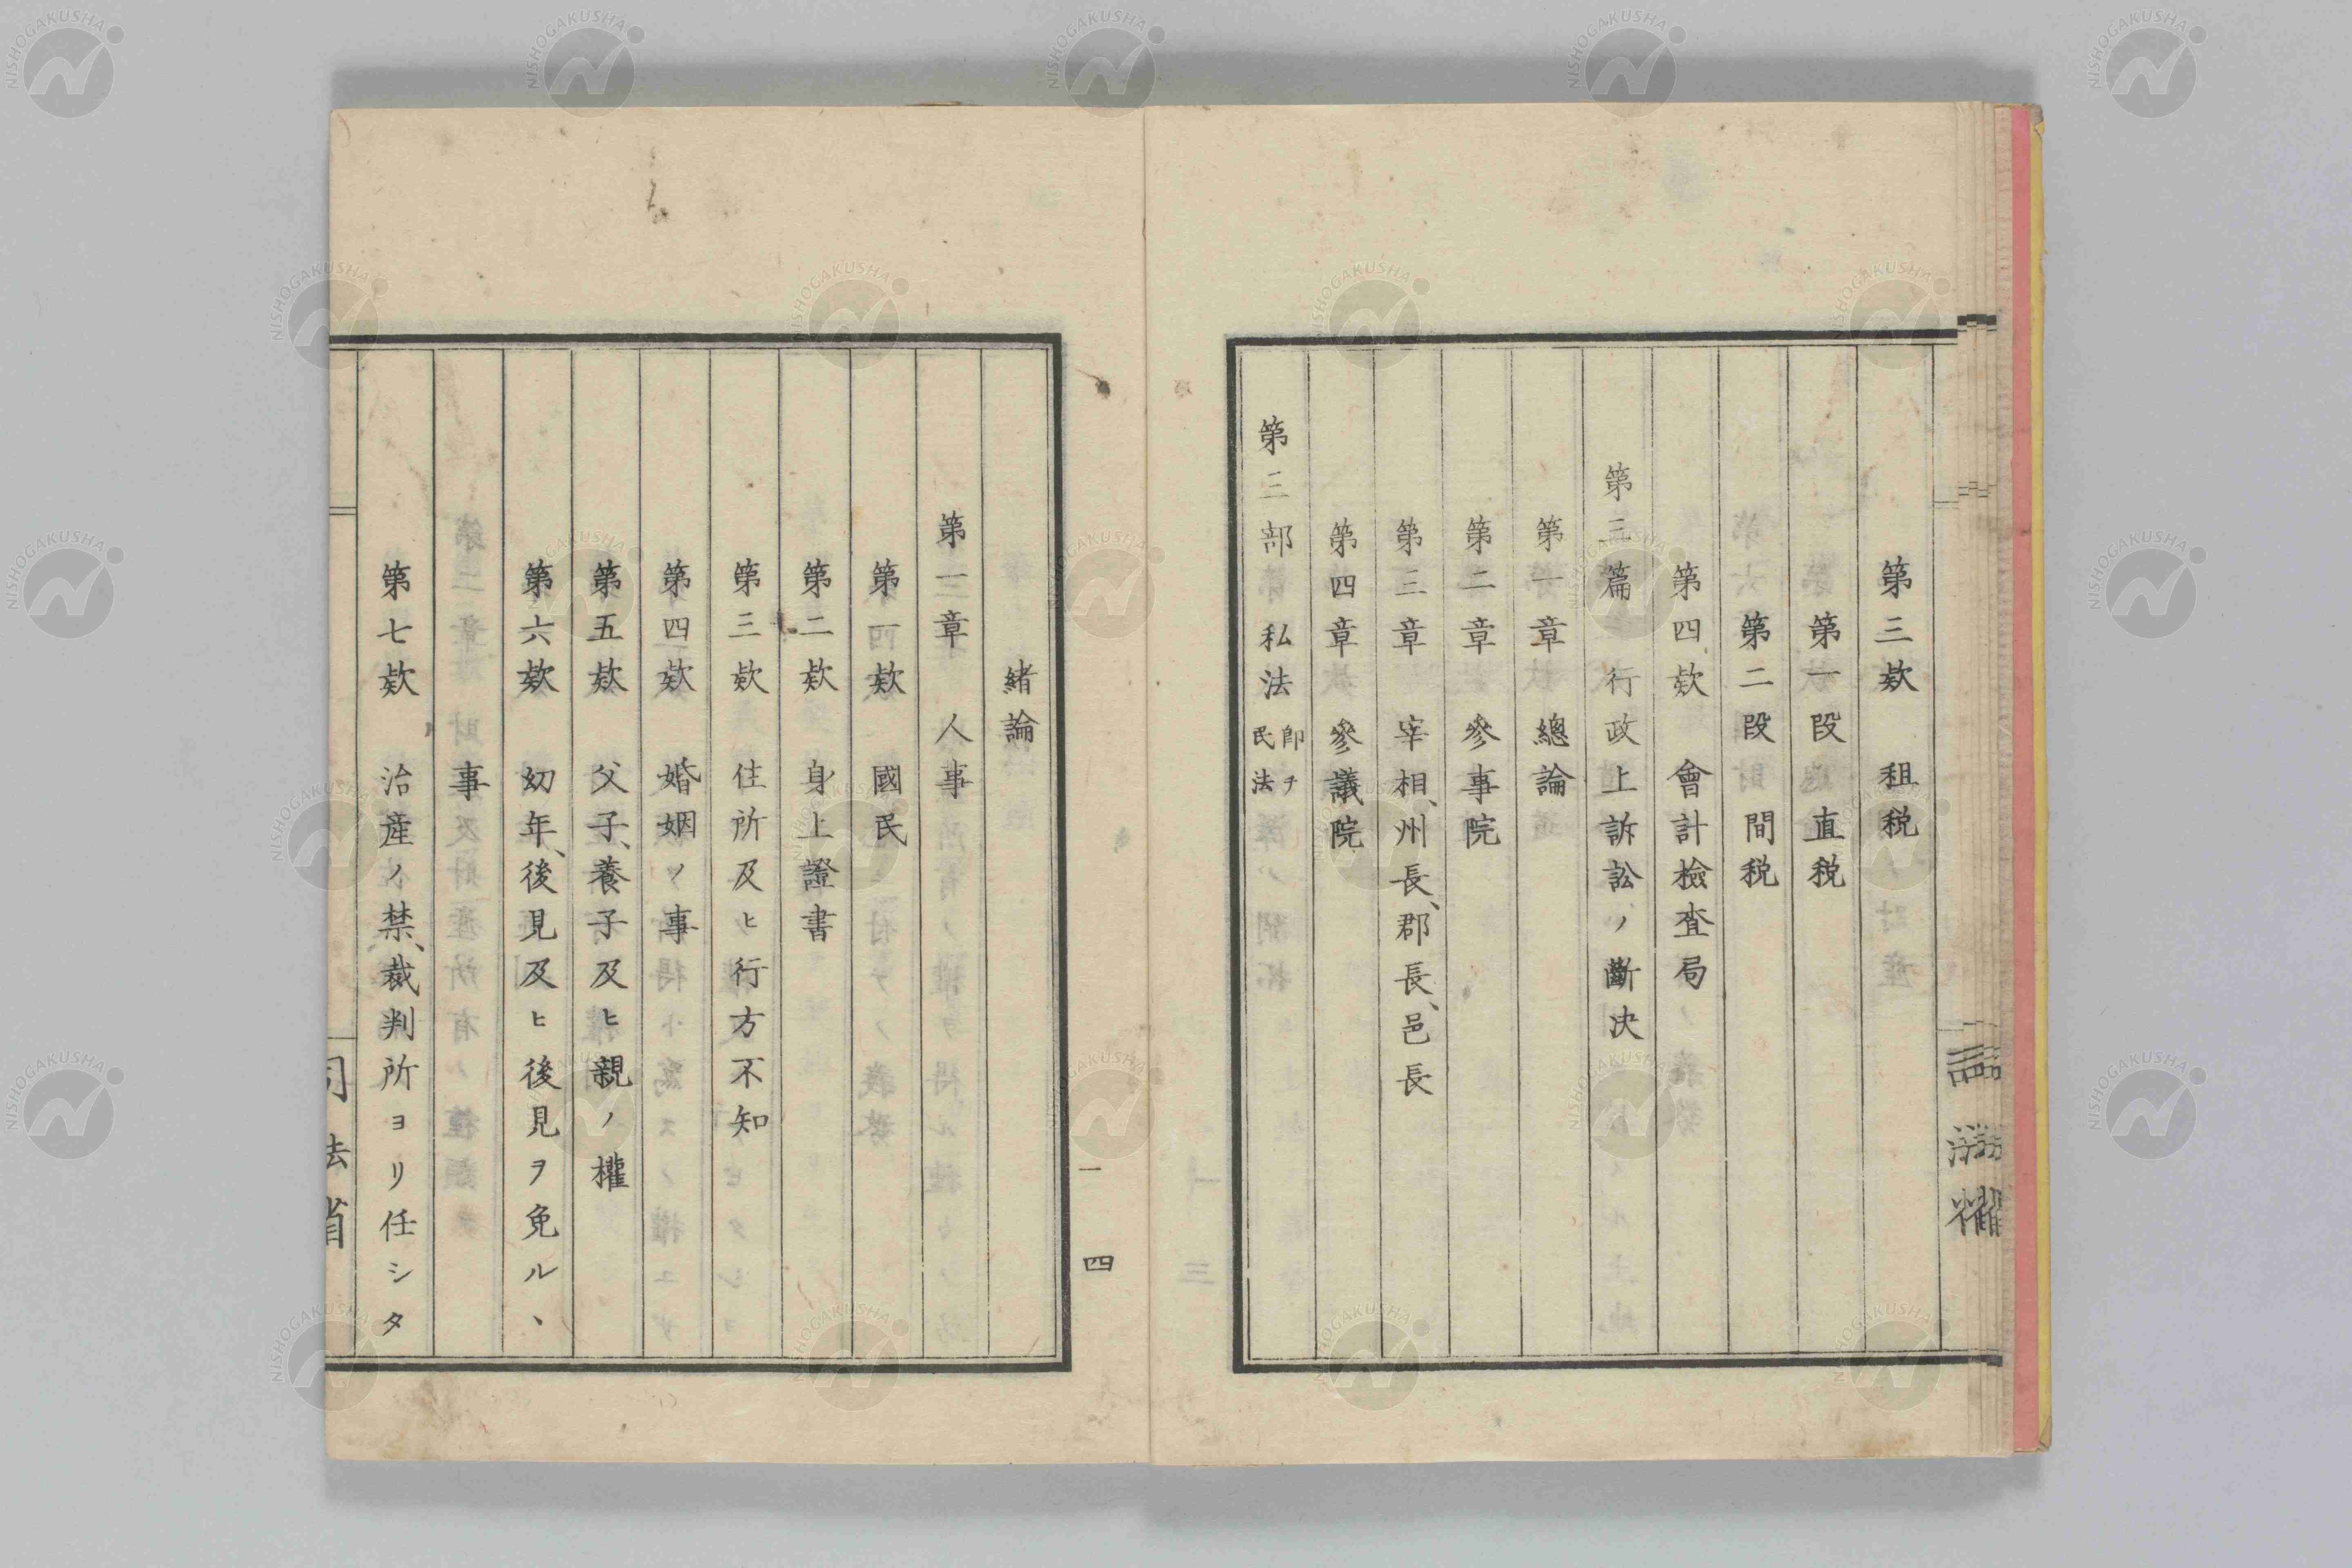 第三欵　租税
第一段　直税
第二段　間税
第四欵　會計檢査局
第三篇　行政上訴訟ノ斷决
第一章　總論
第二章　參事院
第三章　宰相、州長、郡長、邑長
第四章　參議院
第三部　私法 即チ民法
緒論
第一章　人事
第一欵　國民
第二欵　身上證書
第三欵　住所及ヒ行方不知
第四欵　婚姻ノ事
第五欵　父子、養子及ヒ親ノ權
第六欵　幼年、後見及ヒ後見ヲ免ルヽ
事
第七欵　治産ノ禁、裁判所ヨリ任シタ
司法省
一　四
NISHOGAKUSHA